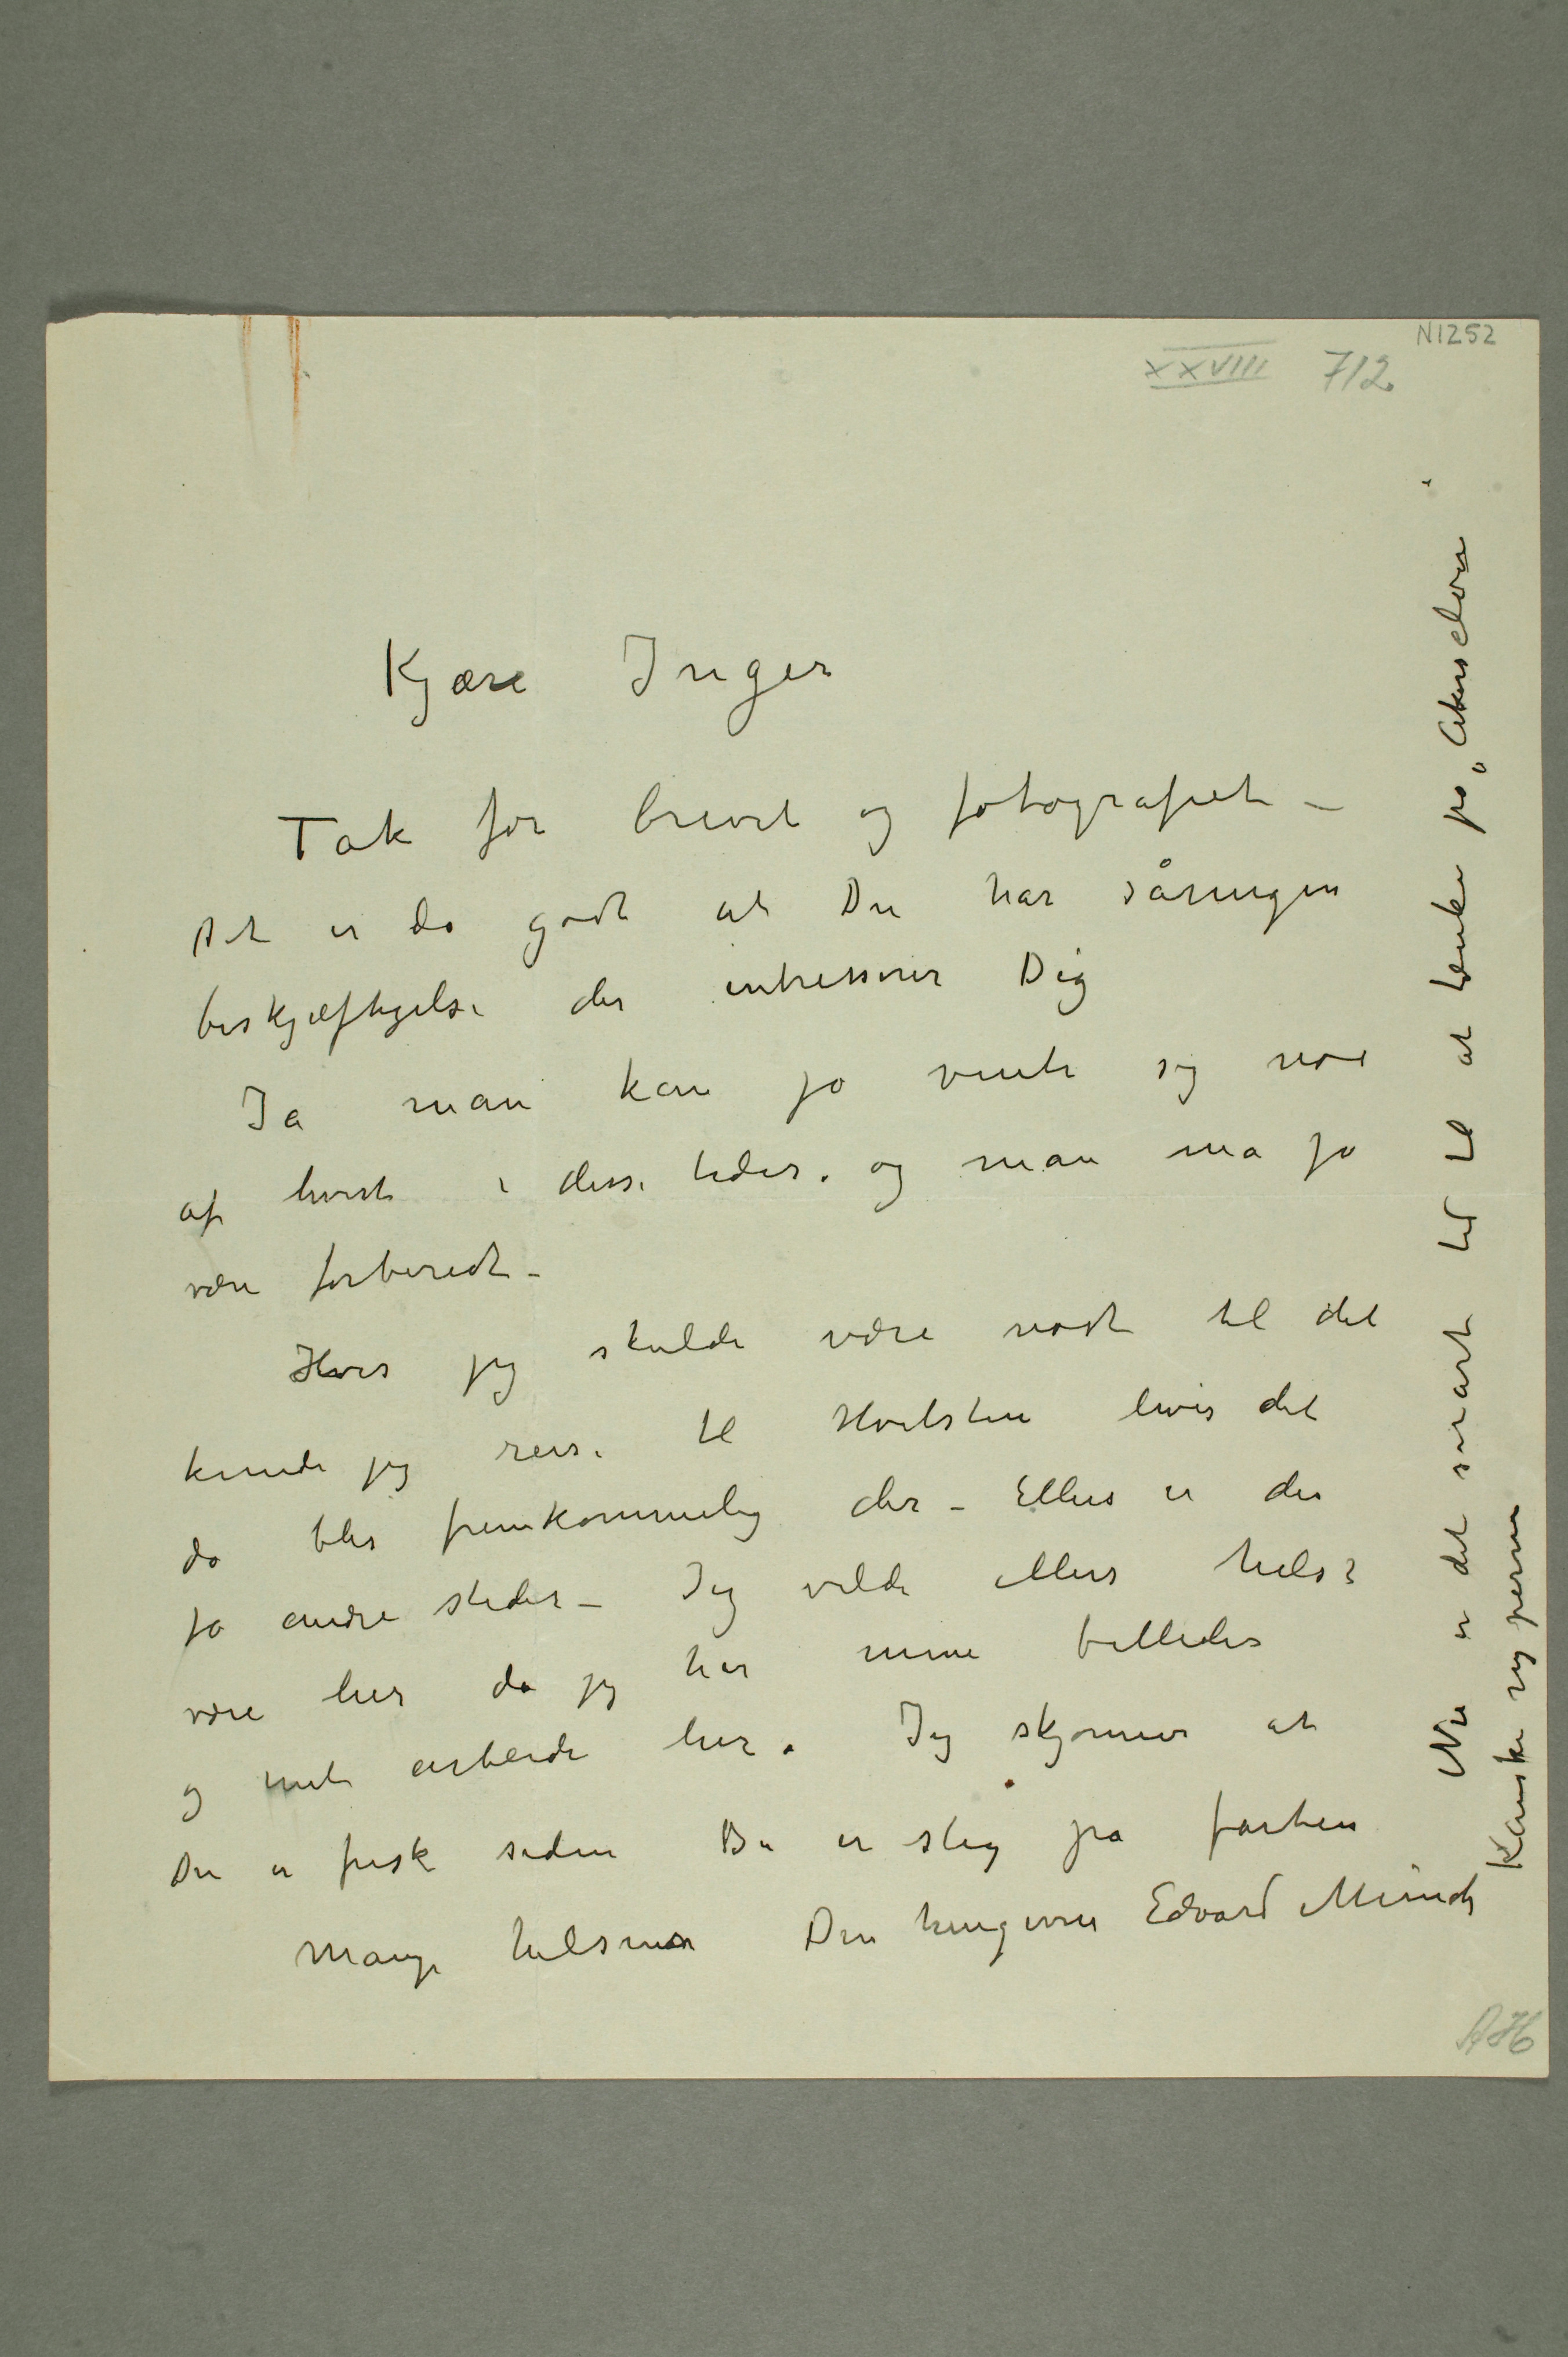 N1252
XXVIII 712.
Kjære Inger
Tak for brevet og fotografiet –
Det er da godt at Du har såmegen
beskjæftigelse der intresserer Dig
Ja man kan jo vente sig noe
af hvert i disse tider. og man ma jo
være forberedt –
Hvis jeg skulde være nødt til det
kunde jeg reise til Hvitsten hvis det
da blir fremkommelig der – Ellers er der
jo andre steder – Jeg vilde ellers helst
være her da jeg har mine billeder
og mit arbeide her. Jeg skjønner at
Du er frisk siden Du er slig på farten
Mange hilsener Din hengivne Edvard Munch
Nu er det snart tid til at tænke på „Akerselven“
Kanske ny penn
AH